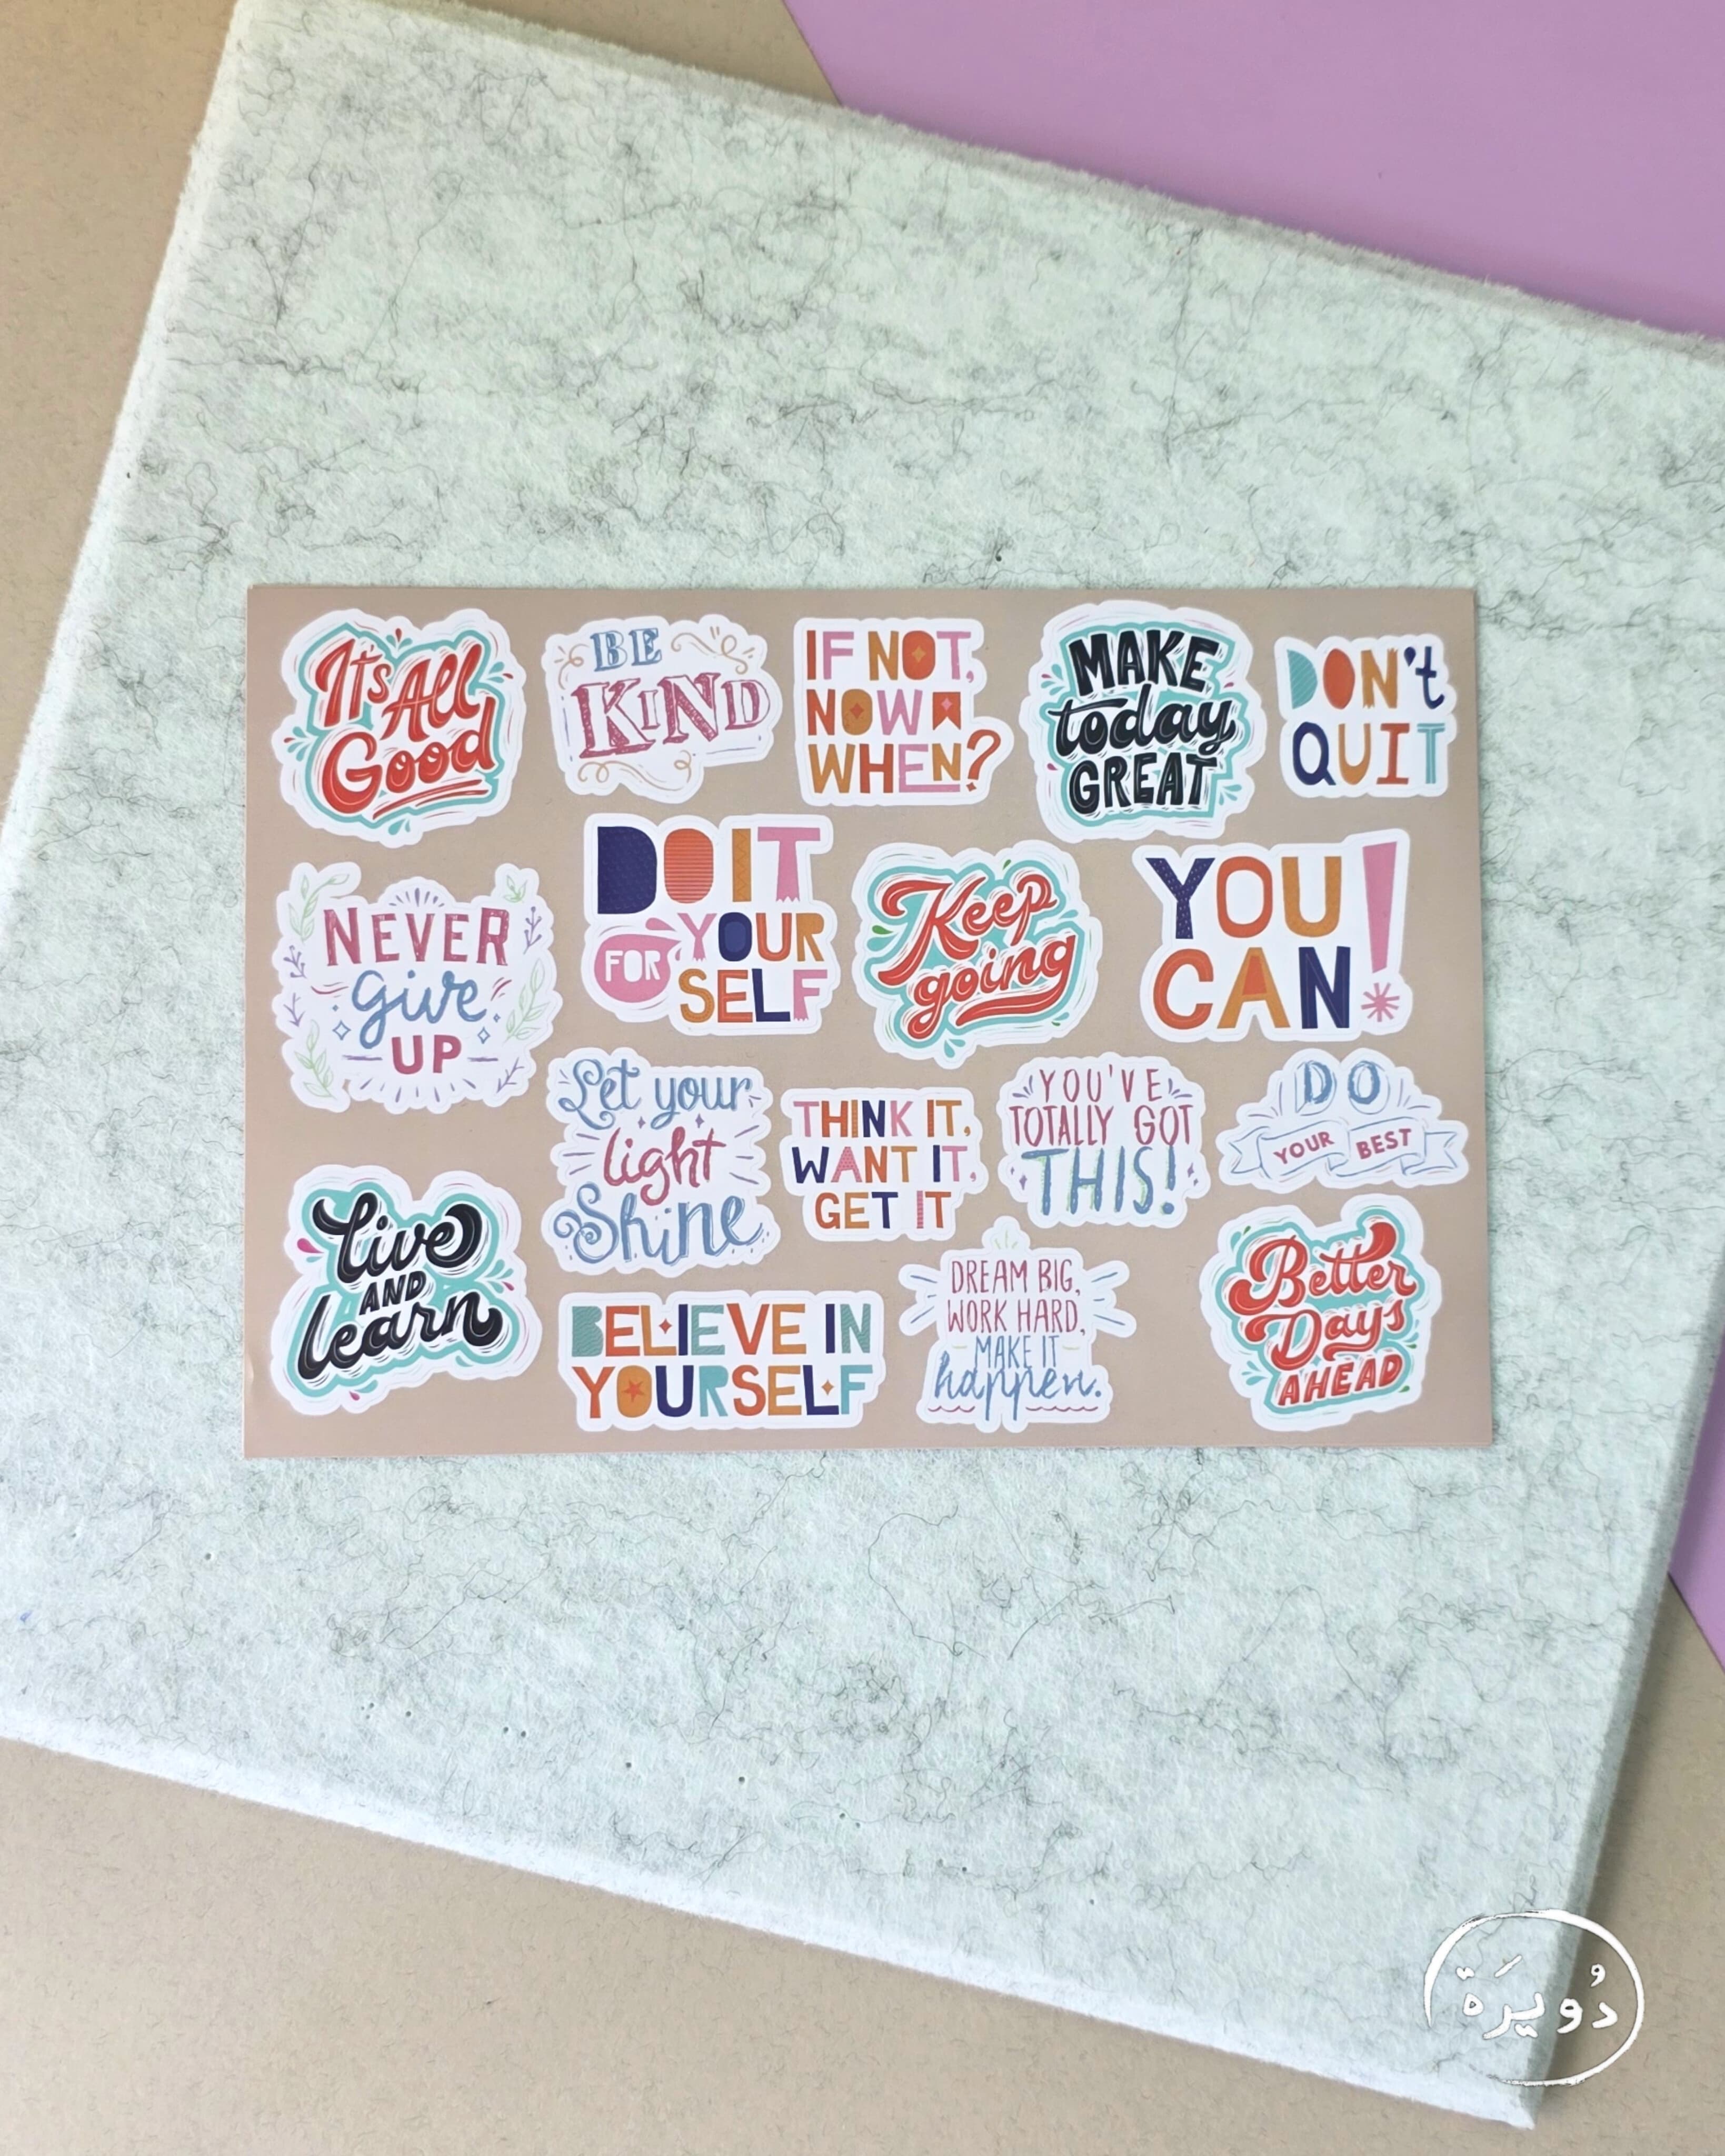 It's All
Good
BE
KIND
IF NOT,
NOW
WHEN?
MAKE
today
GREAT
DON't
QUIT
NEVER
give
UP
DO IT
FOR YOUR
SELF
Keep
going
YOU
CAN!
Let your
light
Shine
THINK IT,
WANT IT,
GET IT
YOU'VE
TOTALLY GOT
THIS!
DO
YOUR BEST
Live
AND
learn
BELIEVE IN
YOURSELF
DREAM BIG,
WORK HARD,
MAKE IT
happen.
Better
Days
AHEAD
دُويرَة